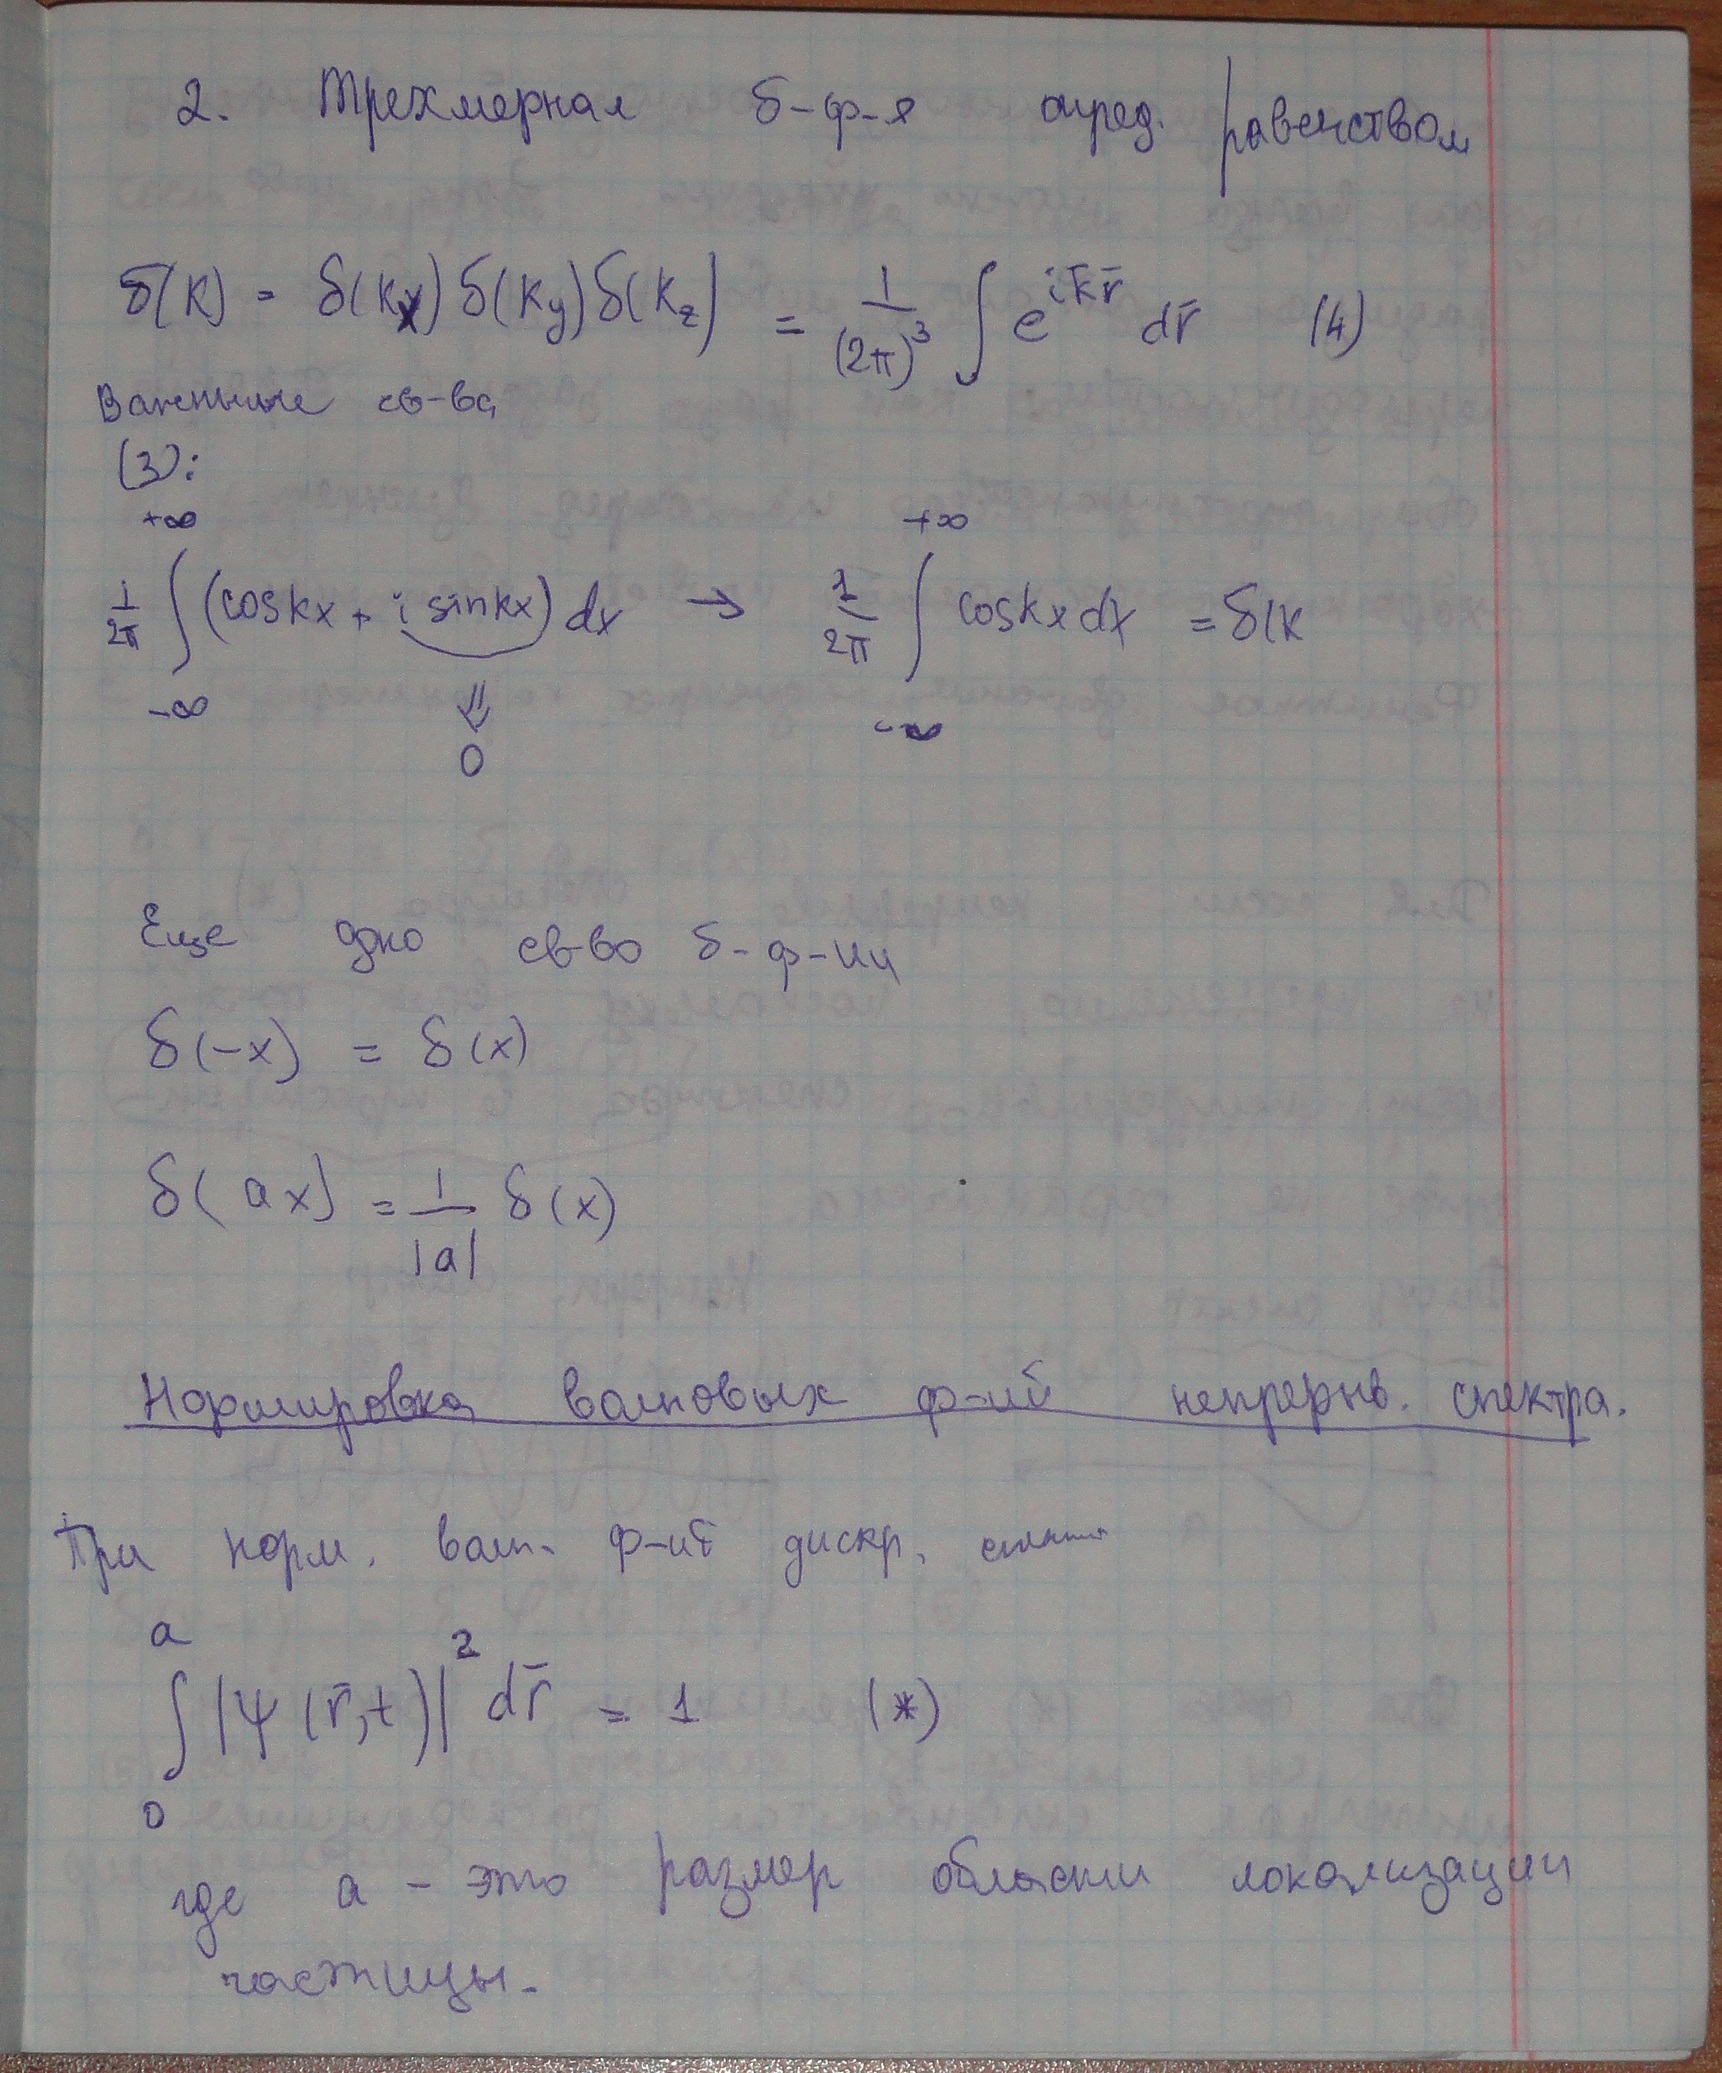 2. Трехмерная δ-ф-я опред. равенством
δ(k) = δ(kx) δ(ky) δ(kz) = 1/(2π)³ ∫ e^{ik̄r̄} dr̄ (4)
Важные св-ва
(3):
1/2π ∫_{-∞}^{+∞} (cos kx + i sin kx) dx → 1/2π ∫_{-∞}^{+∞} cos kx dx = δ(k
⇓
0
Еще одно св-во δ-ф-ии
δ(-x) = δ(x)
δ(ax) = 1/|a| δ(x)
Нормировка волновых ф-ий непрерыв. спектра.
При норм. волн. ф-ий дискр.
∫_0^a |ψ(r̄,t)|² dr̄ = 1 (*)
где a - это размер области локализации
частицы.